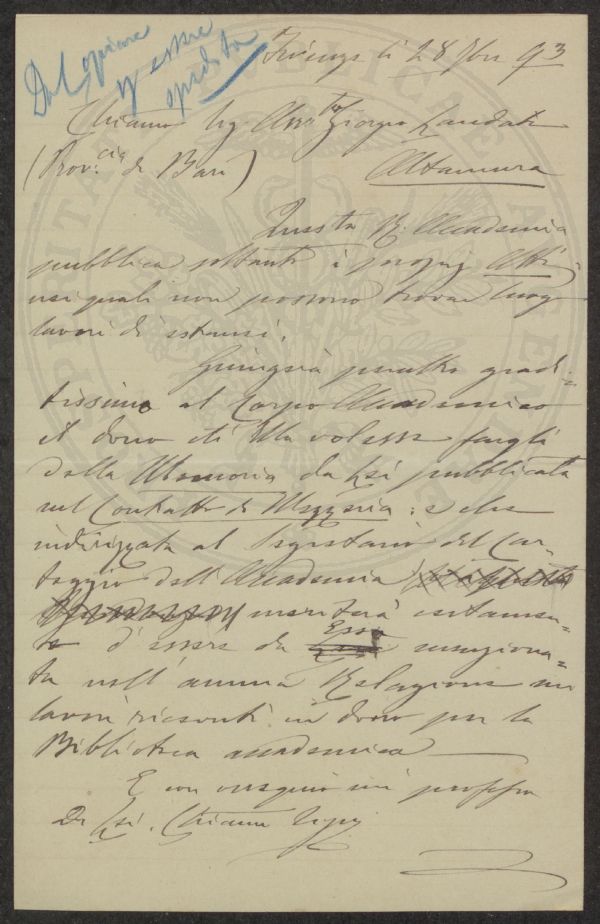 Da Copiare
ed essere
spedita
Firenze li 28 9bre 93
Chiarmo Sig Avvto Giorgio Laudati
(Prov.cia di Bari) Altamura
Questa R. Accademia
pubblica soltanto i proprj Atti,
nei quali non possono trovar luogo
lavori di estranei.
Giungerà peraltro gradi=
tissimo al Corpo Accademico
il dono che Ella volesse fargli
della Memoria da Lei pubblicata
sul Contatto di Mezzeria: e che
indirizzata al Segretario del Car-
teggio dell'Accademia
meriterà certamen=
te d'essere da Esso menziona=
ta nell'annua Relazione sui
lavori ricevuti in dono per la
Biblioteca accademica
E con ossequio mi professo
Di Lei. Chiarmo Sigre
SPUBLICAE